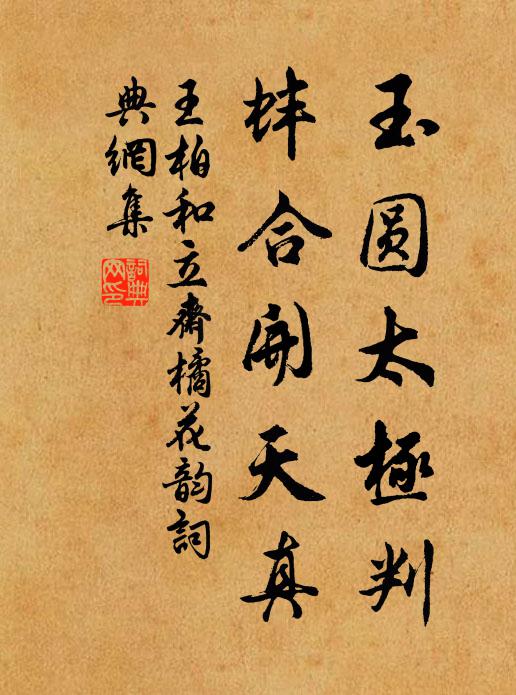 玉圆太極判
蚌合開天真
王柏和立齋橘花韵詞
典網集
詞典
网印